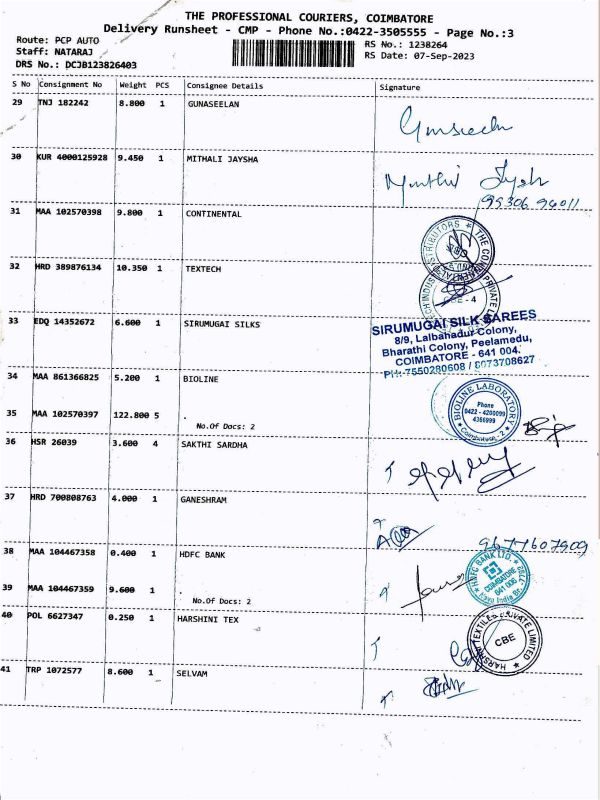 THE PROFESSIONAL COURIERS, COIMBATORE
Delivery Runsheet - CMP - Phone No.:0422-3505555 - Page No.:3
Route: PCP AUTO
Staff: NATARAJ
DRS No.: DCJB123826403
RS No.: 1238264
RS Date: 07-Sep-2023
S No Consignment No Weight PCS Consignee Details Signature
29 TNJ 182242 8.800 1 GUNASEELAN
30 KUR 4000125928 9.450 1 MITHALI JAYSHA
99306 94011
31 MAA 102570398 9.800 1 CONTINENTAL
32 HRD 389876134 10.350 1 TEXTECH
CBE - 4
33 EDQ 14352672 6.600 1 SIRUMUGAI SILKS
SIRUMUGAI SILK SAREES
8/9, Lalbahadur Colony,
Bharathi Colony, Peelamedu,
COIMBATORE - 641 004.
PH:-7550280608 / 8073708627
34 MAA 861366825 5.200 1 BIOLINE
BIOLINE LABORATORY
Phone
0422 - 4200099
4366999
Coimbatore - 2
35 MAA 102570397 122.800 5 .
No.Of Docs: 2
36 HSR 26039 3.600 4 SAKTHI SARDHA
37 HRD 700808763 4.000 1 GANESHRAM
9677607909
38 MAA 104467358 0.400 1 HDFC BANK
HDFC BANK LTD.
COIMBATORE
641 006
39 MAA 104467359 9.600 1 .
No.Of Docs: 2
40 POL 6627347 0.250 1 HARSHINI TEX
HARSHINI TEXTILES PRIVATE LIMITED
CBE
41 TRP 1072577 8.600 1 SELVAM